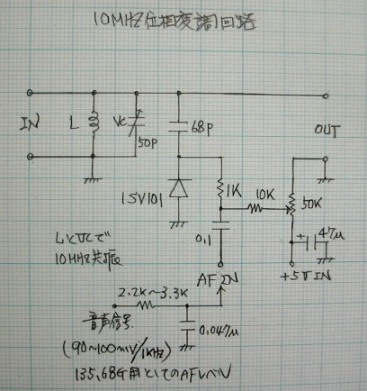 10MHz位相変調回路
IN
L
Vc
50P
68P
OUT
1K
10K
50K
1SV101
0.1
+
47μ
LとVcで
10MHz共振
AF IN
+5V IN
2.2K〜3.3K
音声信号
0.047μ
(90~100mV/1KHz)
135,68G用としてのAFレベル